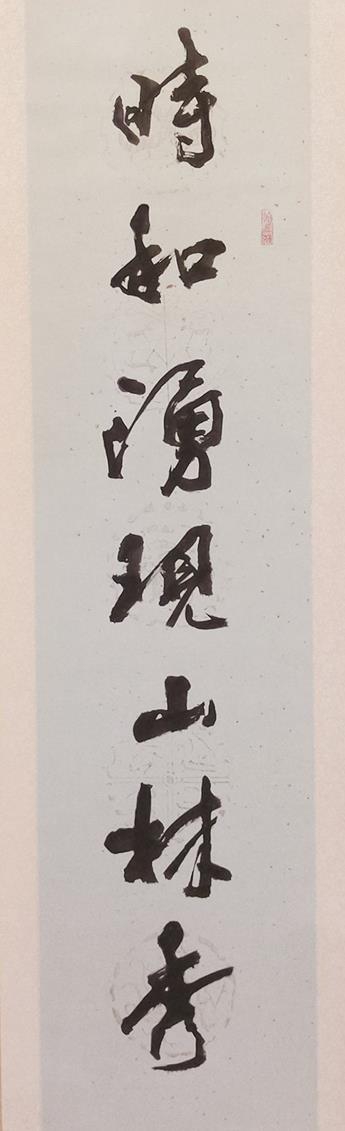 時和湧現山林秀